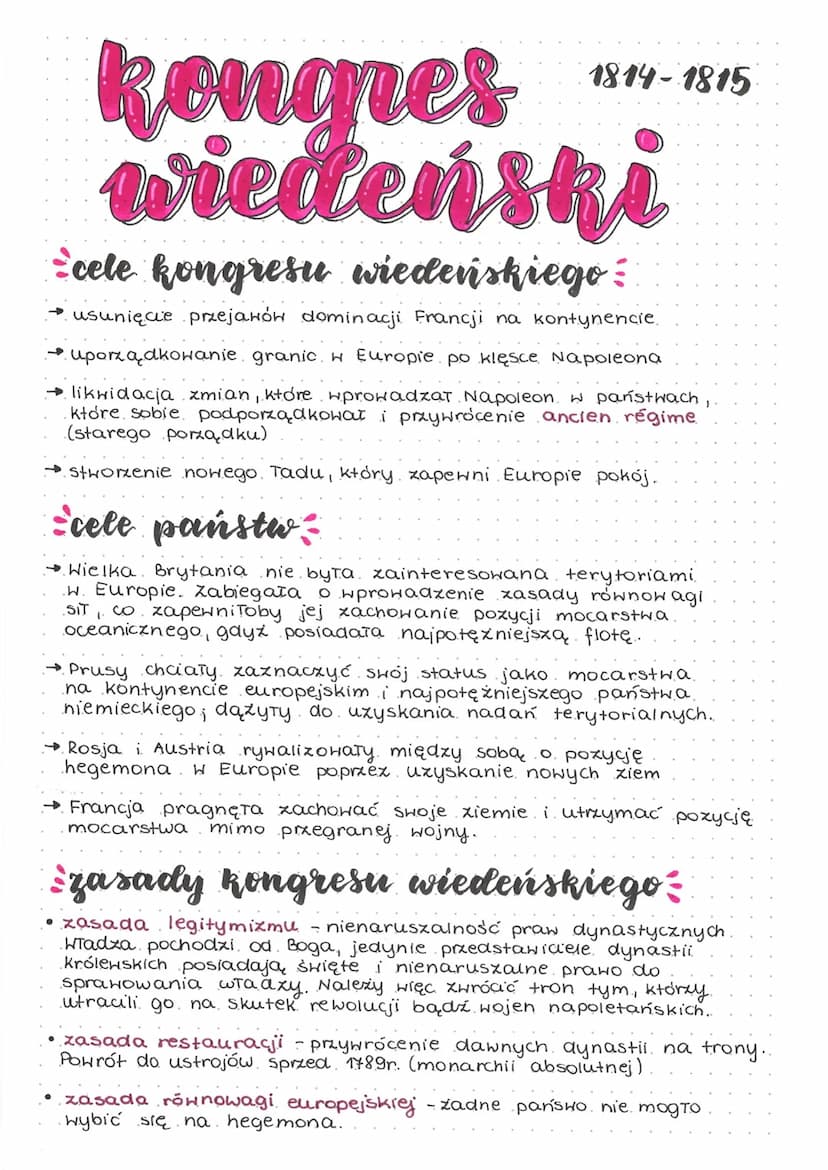 kongres
1814-1815
wiedeński
cele kongresu wiedeńskiego
→ usunięcie przejawów dominacji Francji na kontynencie
→ uporządkowanie granic w Europie po klęsce Napoleona
→ likwidacja zmian, które wprowadzał Napoleon w państwach,
które sobie podporządkował i przywrócenie ancien régime
(starego porządku)
→ stworzenie nowego ładu, który zapewni Europie pokój.
cele państw
→ Wielka Brytania nie była zainteresowana terytoriami
w Europie. Zabiegała o wprowadzenie zasady równowagi
sił, co zapewniłoby jej zachowanie pozycji mocarstwa
oceanicznego, gdyż posiadała najpotężniejszą flotę.
→ Prusy chciały zaznaczyć swój status jako mocarstwa
na kontynencie europejskim i najpotężniejszego państwa
niemieckiego; dążyły do uzyskania nadań terytorialnych.
→ Rosja i Austria rywalizowały między sobą o pozycję
hegemona w Europie poprzez uzyskanie nowych ziem
→ Francja pragnęła zachować swoje ziemie i utrzymać pozycję
mocarstwa mimo przegranej wojny.
zasady kongresu wiedeńskiego
• zasada legitymizmu - nienaruszalność praw dynastycznych
Władza pochodzi od Boga, jedynie przedstawiciele dynastii
królewskich posiadają święte i nienaruszalne prawo do
sprawowania władzy. Należy więc zwrócić tron tym, którzy
utracili go na skutek rewolucji bądź wojen napoletańskich.
• zasada restauracji - przywrócenie dawnych dynastii na trony.
Powrót do ustrojów sprzed 1789r. (monarchii absolutnej)
• zasada równowagi europejskiej - żadne pańswo nie mogło
wybić się na hegemona.